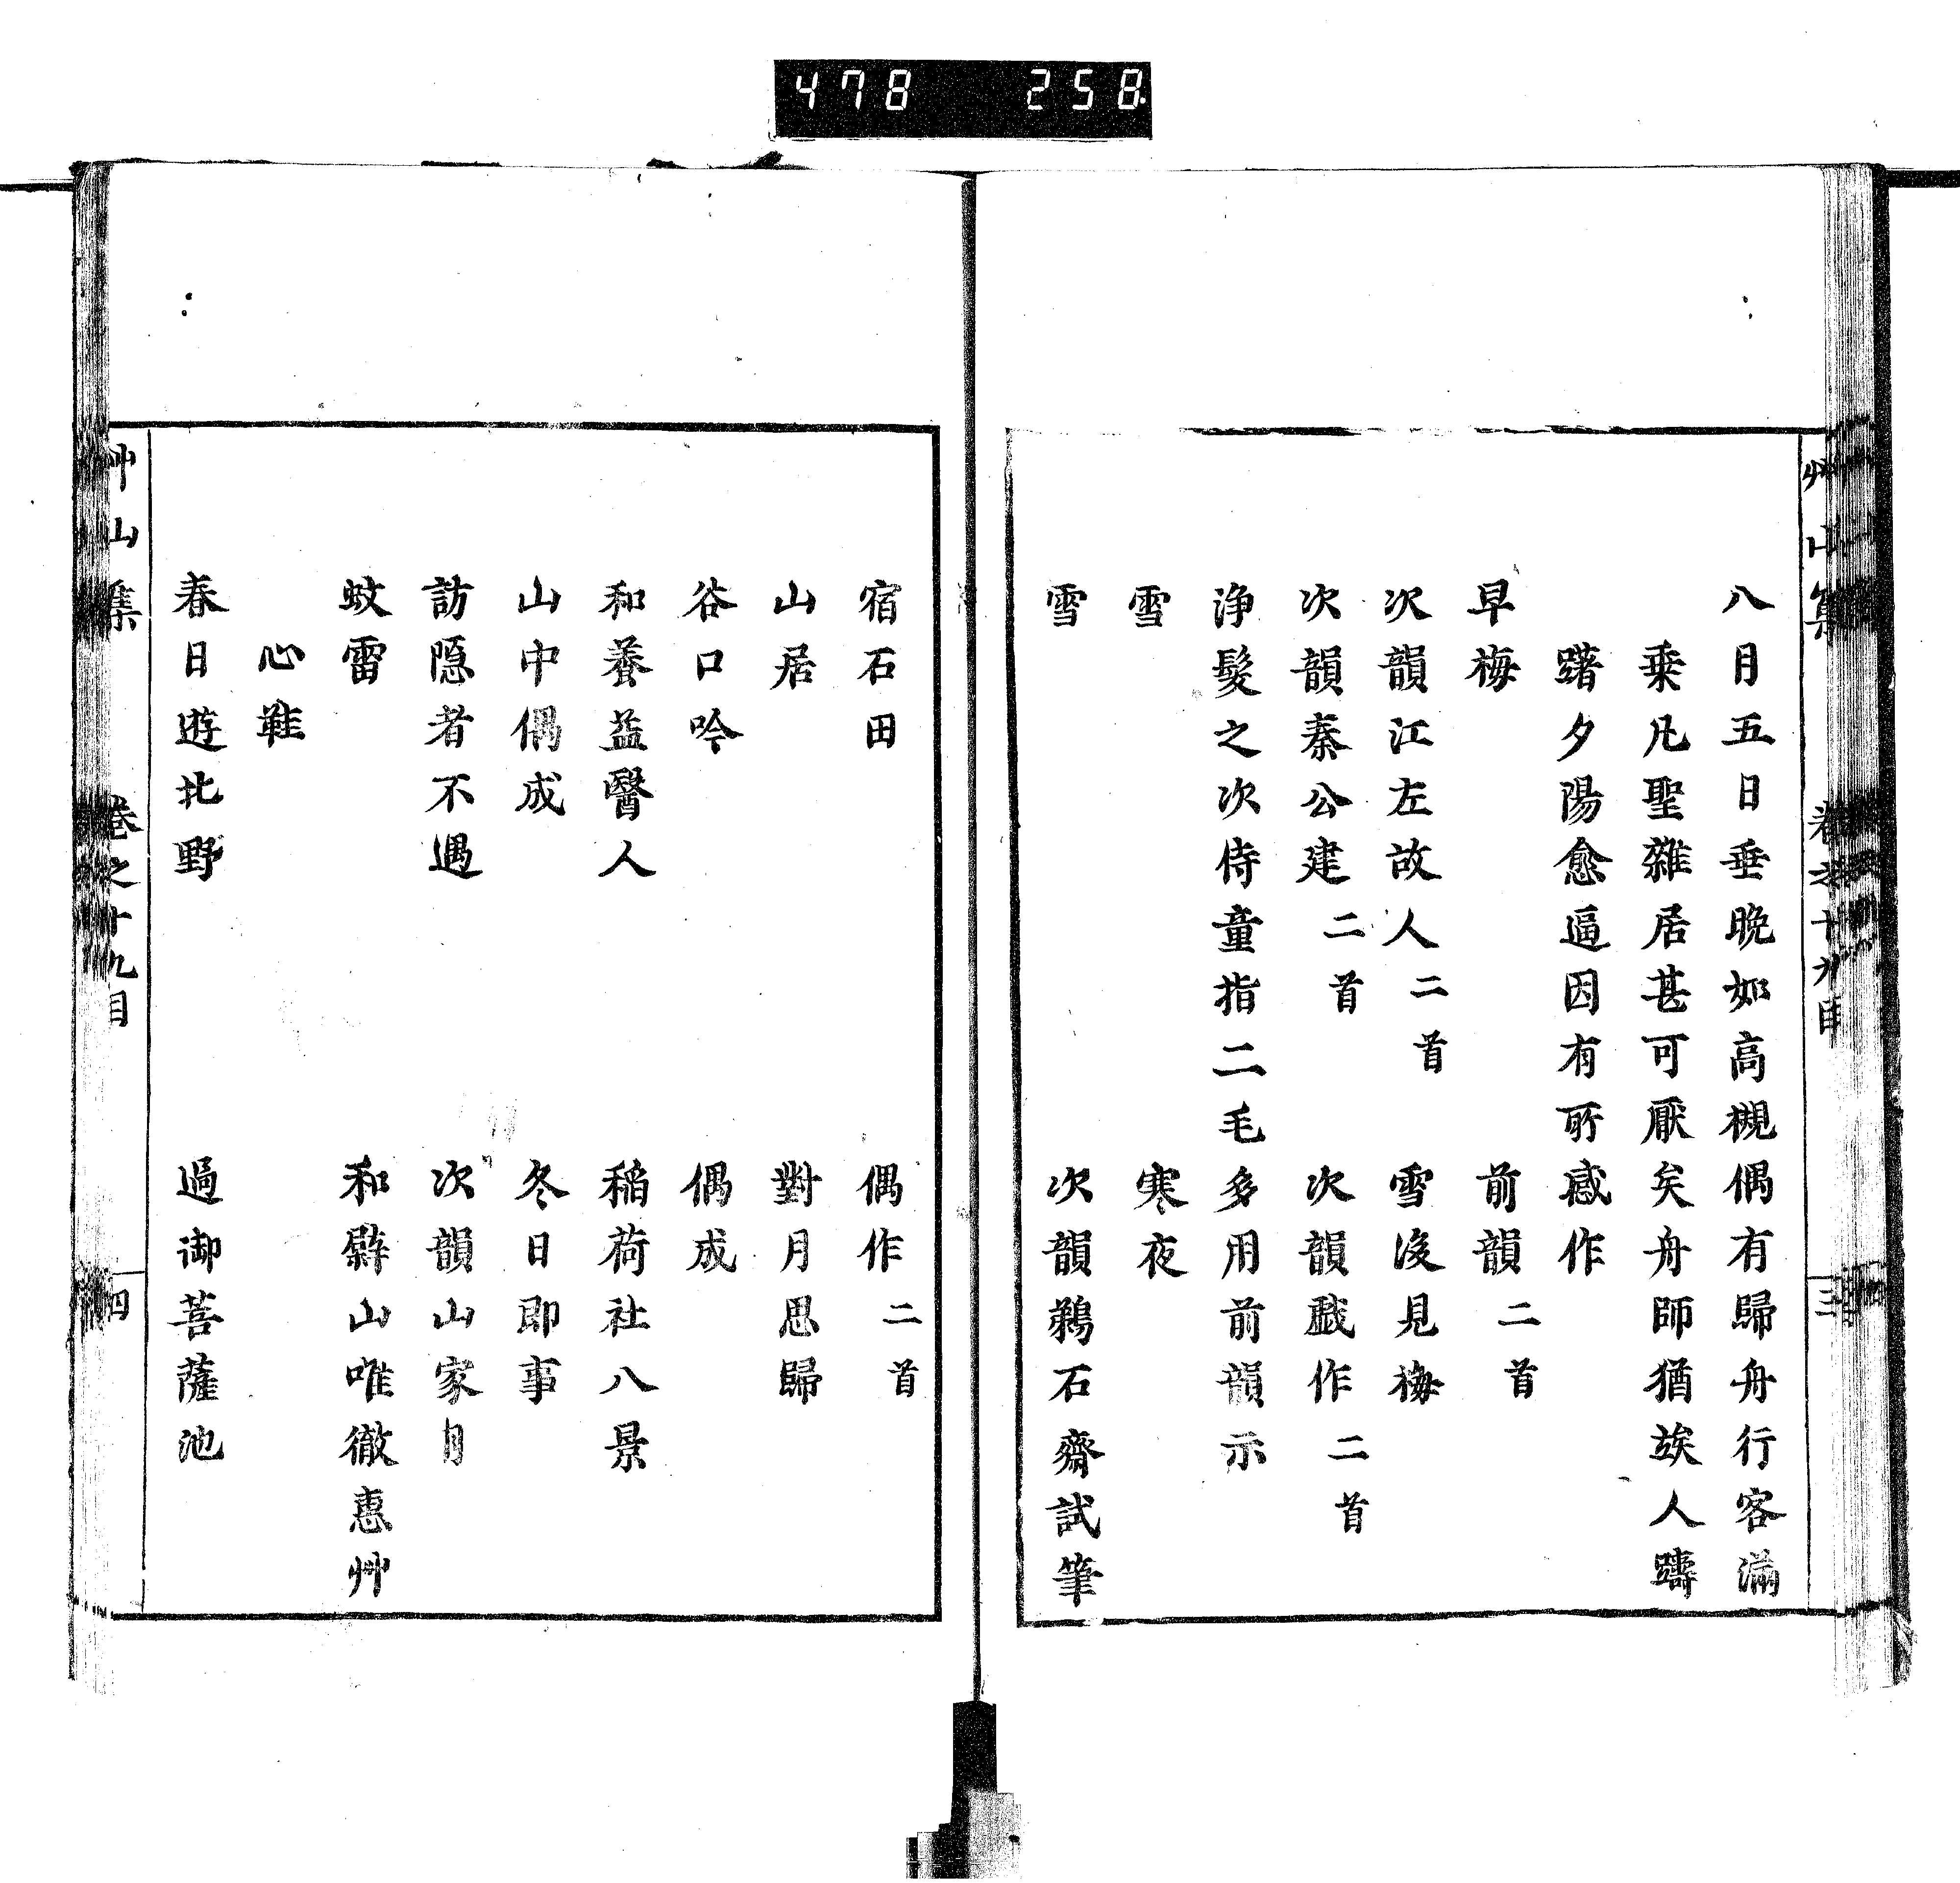 478 258
艸山集 卷之十九目 三
八月五日垂晩如高槻偶有歸舟行客滿
乗凡聖雜居甚可厭矣舟師猶竢人躊
躇夕陽愈逼因有所感作
早梅 前韻二首
次韻江左故人二首 雪後見梅
次韻秦公建二首 次韻戲作二首
浄髮之次侍童指二毛多用前韻示
雪 寒夜
雪 次韻鵜石齋試筆
宿石田 偶作二首
山居 對月思歸
谷口吟 偶成
和養益醫人 稲荷社八景
山中偶成 冬日即事
訪隠者不遇 次韻山家月
蚊雷 和山唯徹惠艸
心難
春日遊北野 過御菩薩池
艸山集 卷之十九目 四